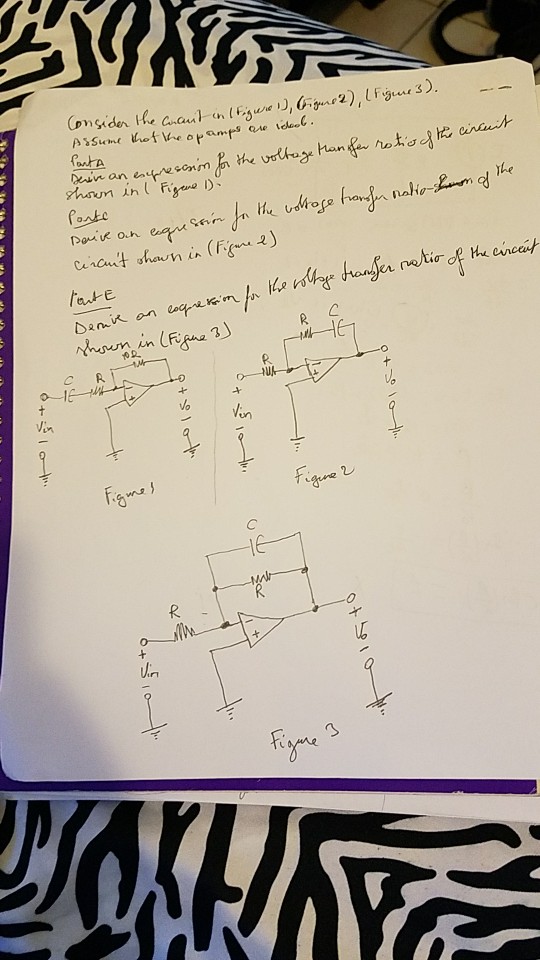 Consider the circuit in (Figure 1), (Figure 2), (Figure 3).
Assume that the opamps are ideal.
Part A
Derive an expression for the voltage transfer ratio of the circuit
shown in ( Figure 1).
Part C
Derive an expression for the voltage transfer ratio of the
circuit shown in (Figure 2)
Part E
Derive an expression for the voltage transfer ratio of the circuit
shown in (Figure 3)
C
R
+
Vin
-
-
+
+
Vo
-
Figure 1
R
C
R
+
Vin
-
-
+
+
Vo
-
Figure 2
C
R
R
+
Vin
-
-
+
+
Vo
-
Figure 3